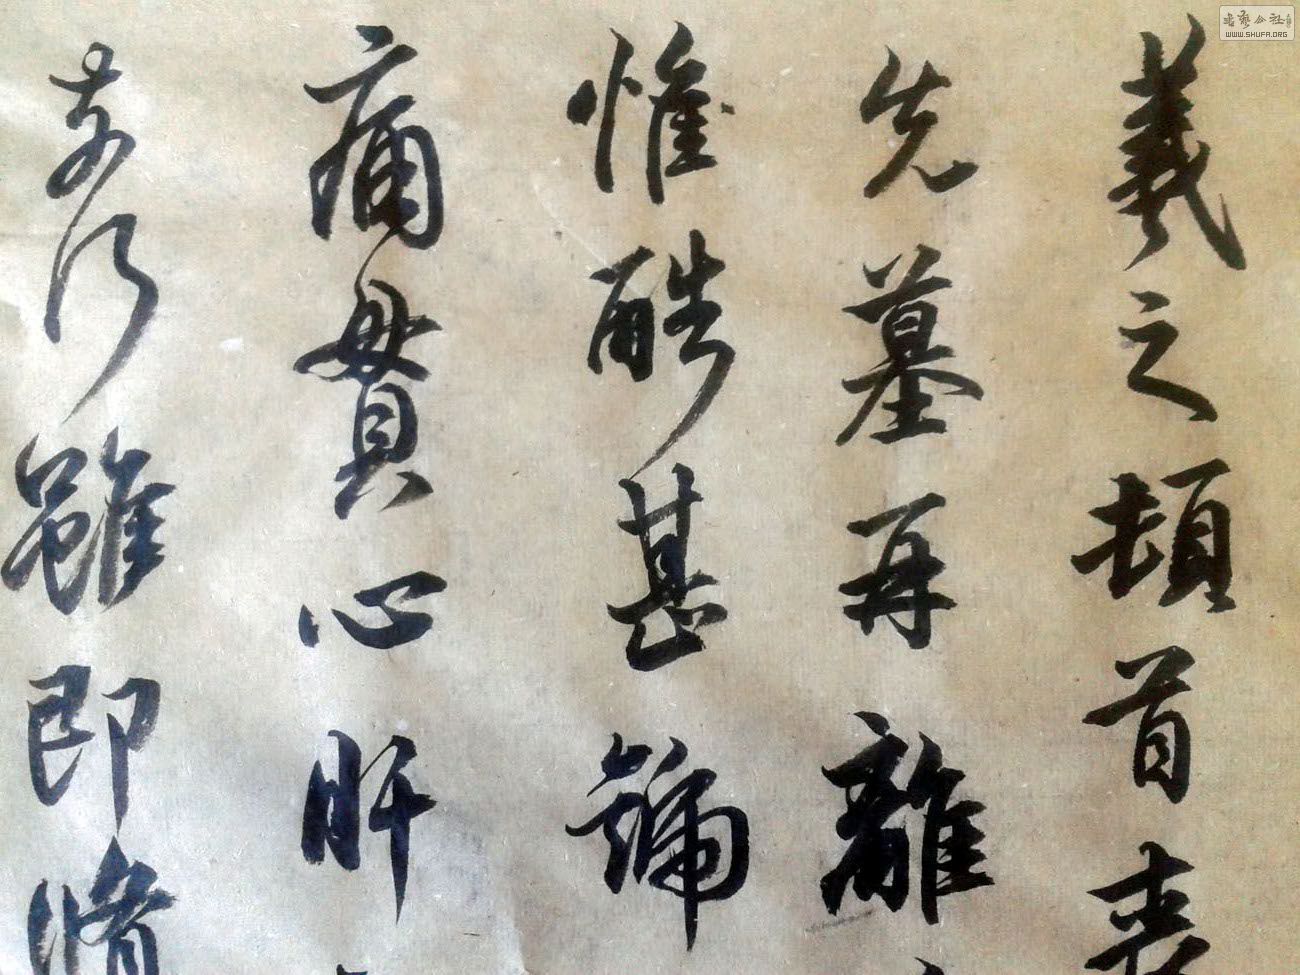 羲之頓首喪
先墓再離
惟酷甚號
痛貫心肝
毒雖即脩
書藝公社
WWW.SHUFA.ORG